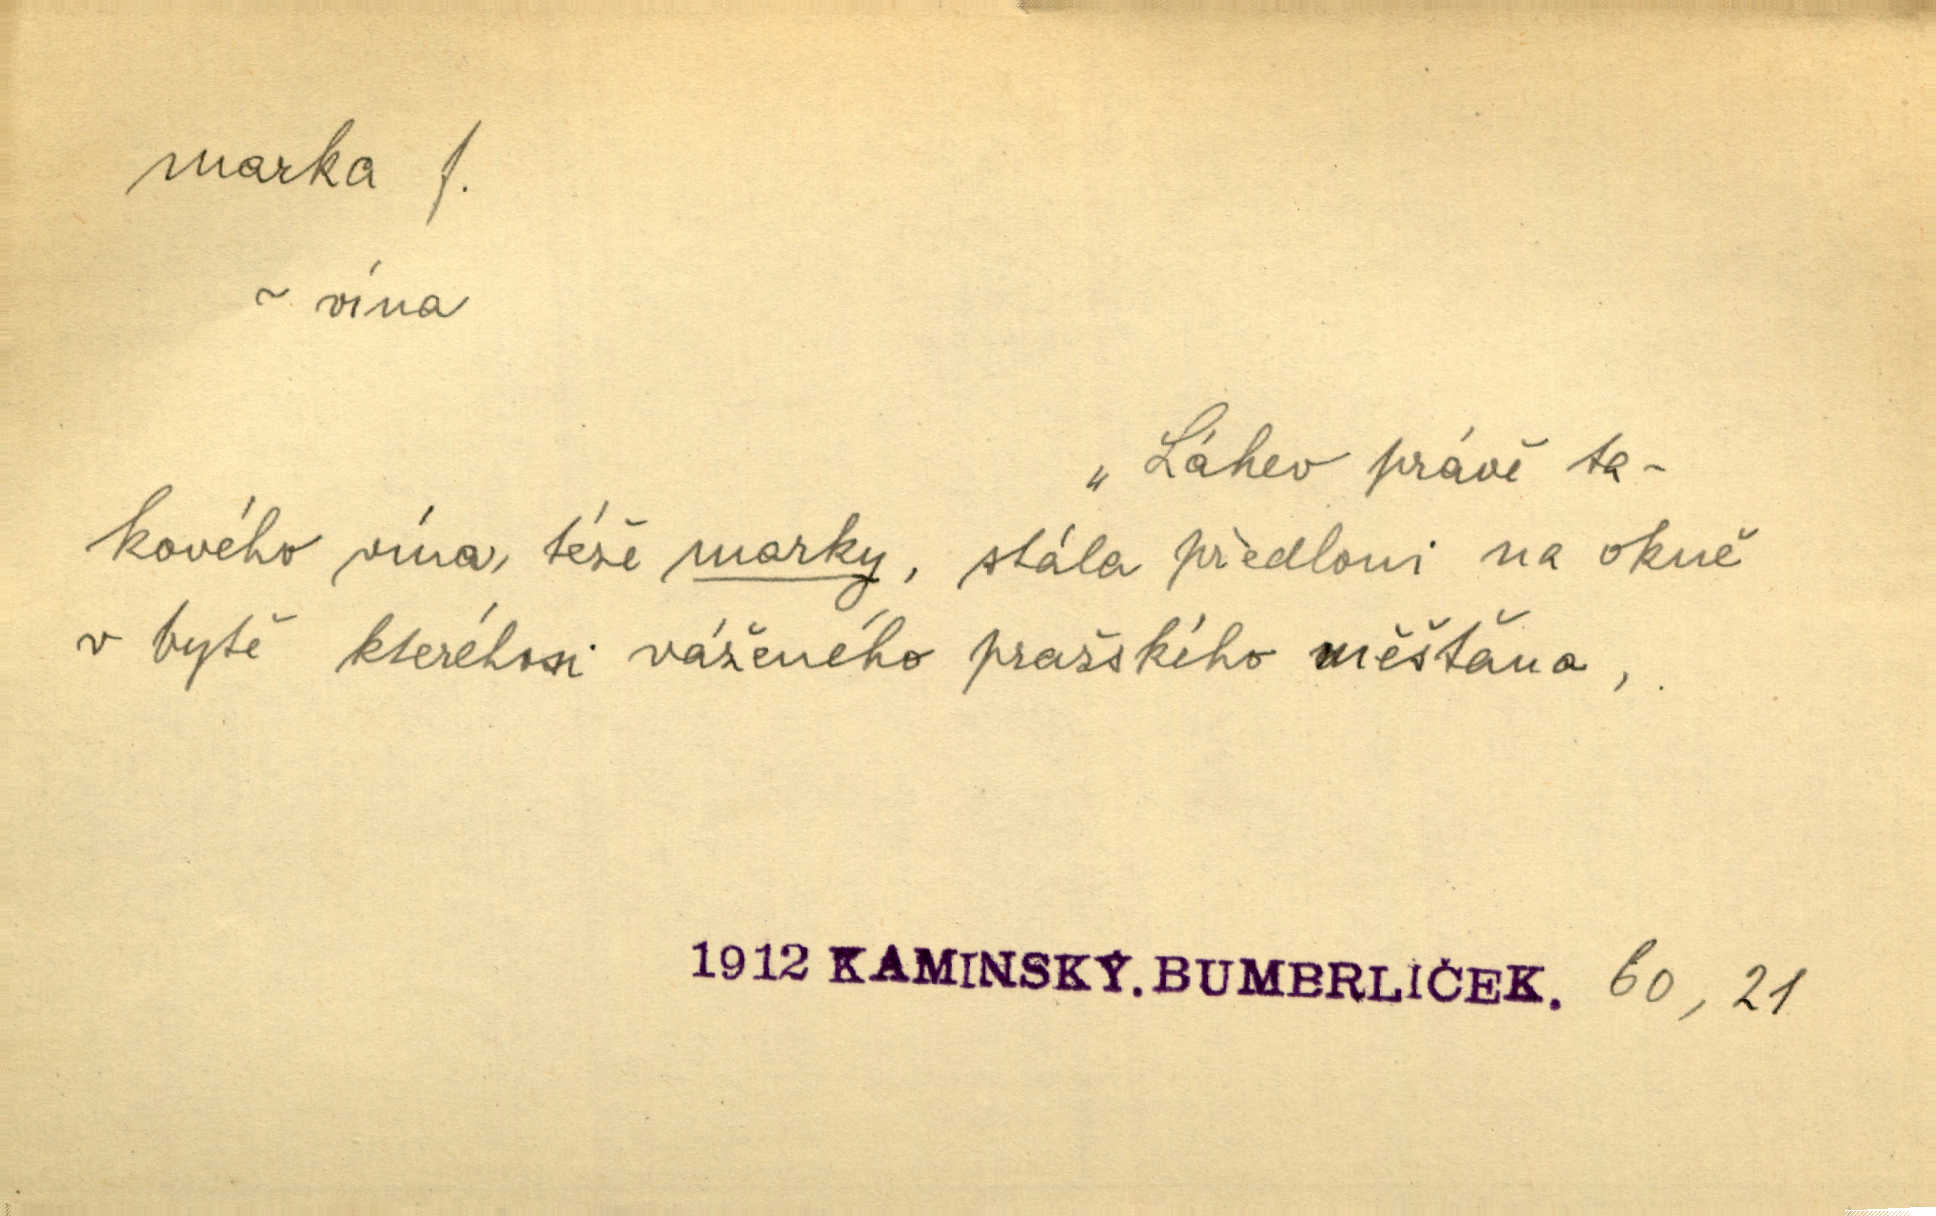 marka f.
~ vína
„Láhev právě ta-
kového vína, téže marky, stála předloni na okně
v bytě kteréhosi váženého pražského měšťana,
1912 KAMINSKÝ. BUMBRLIČEK. 60, 21